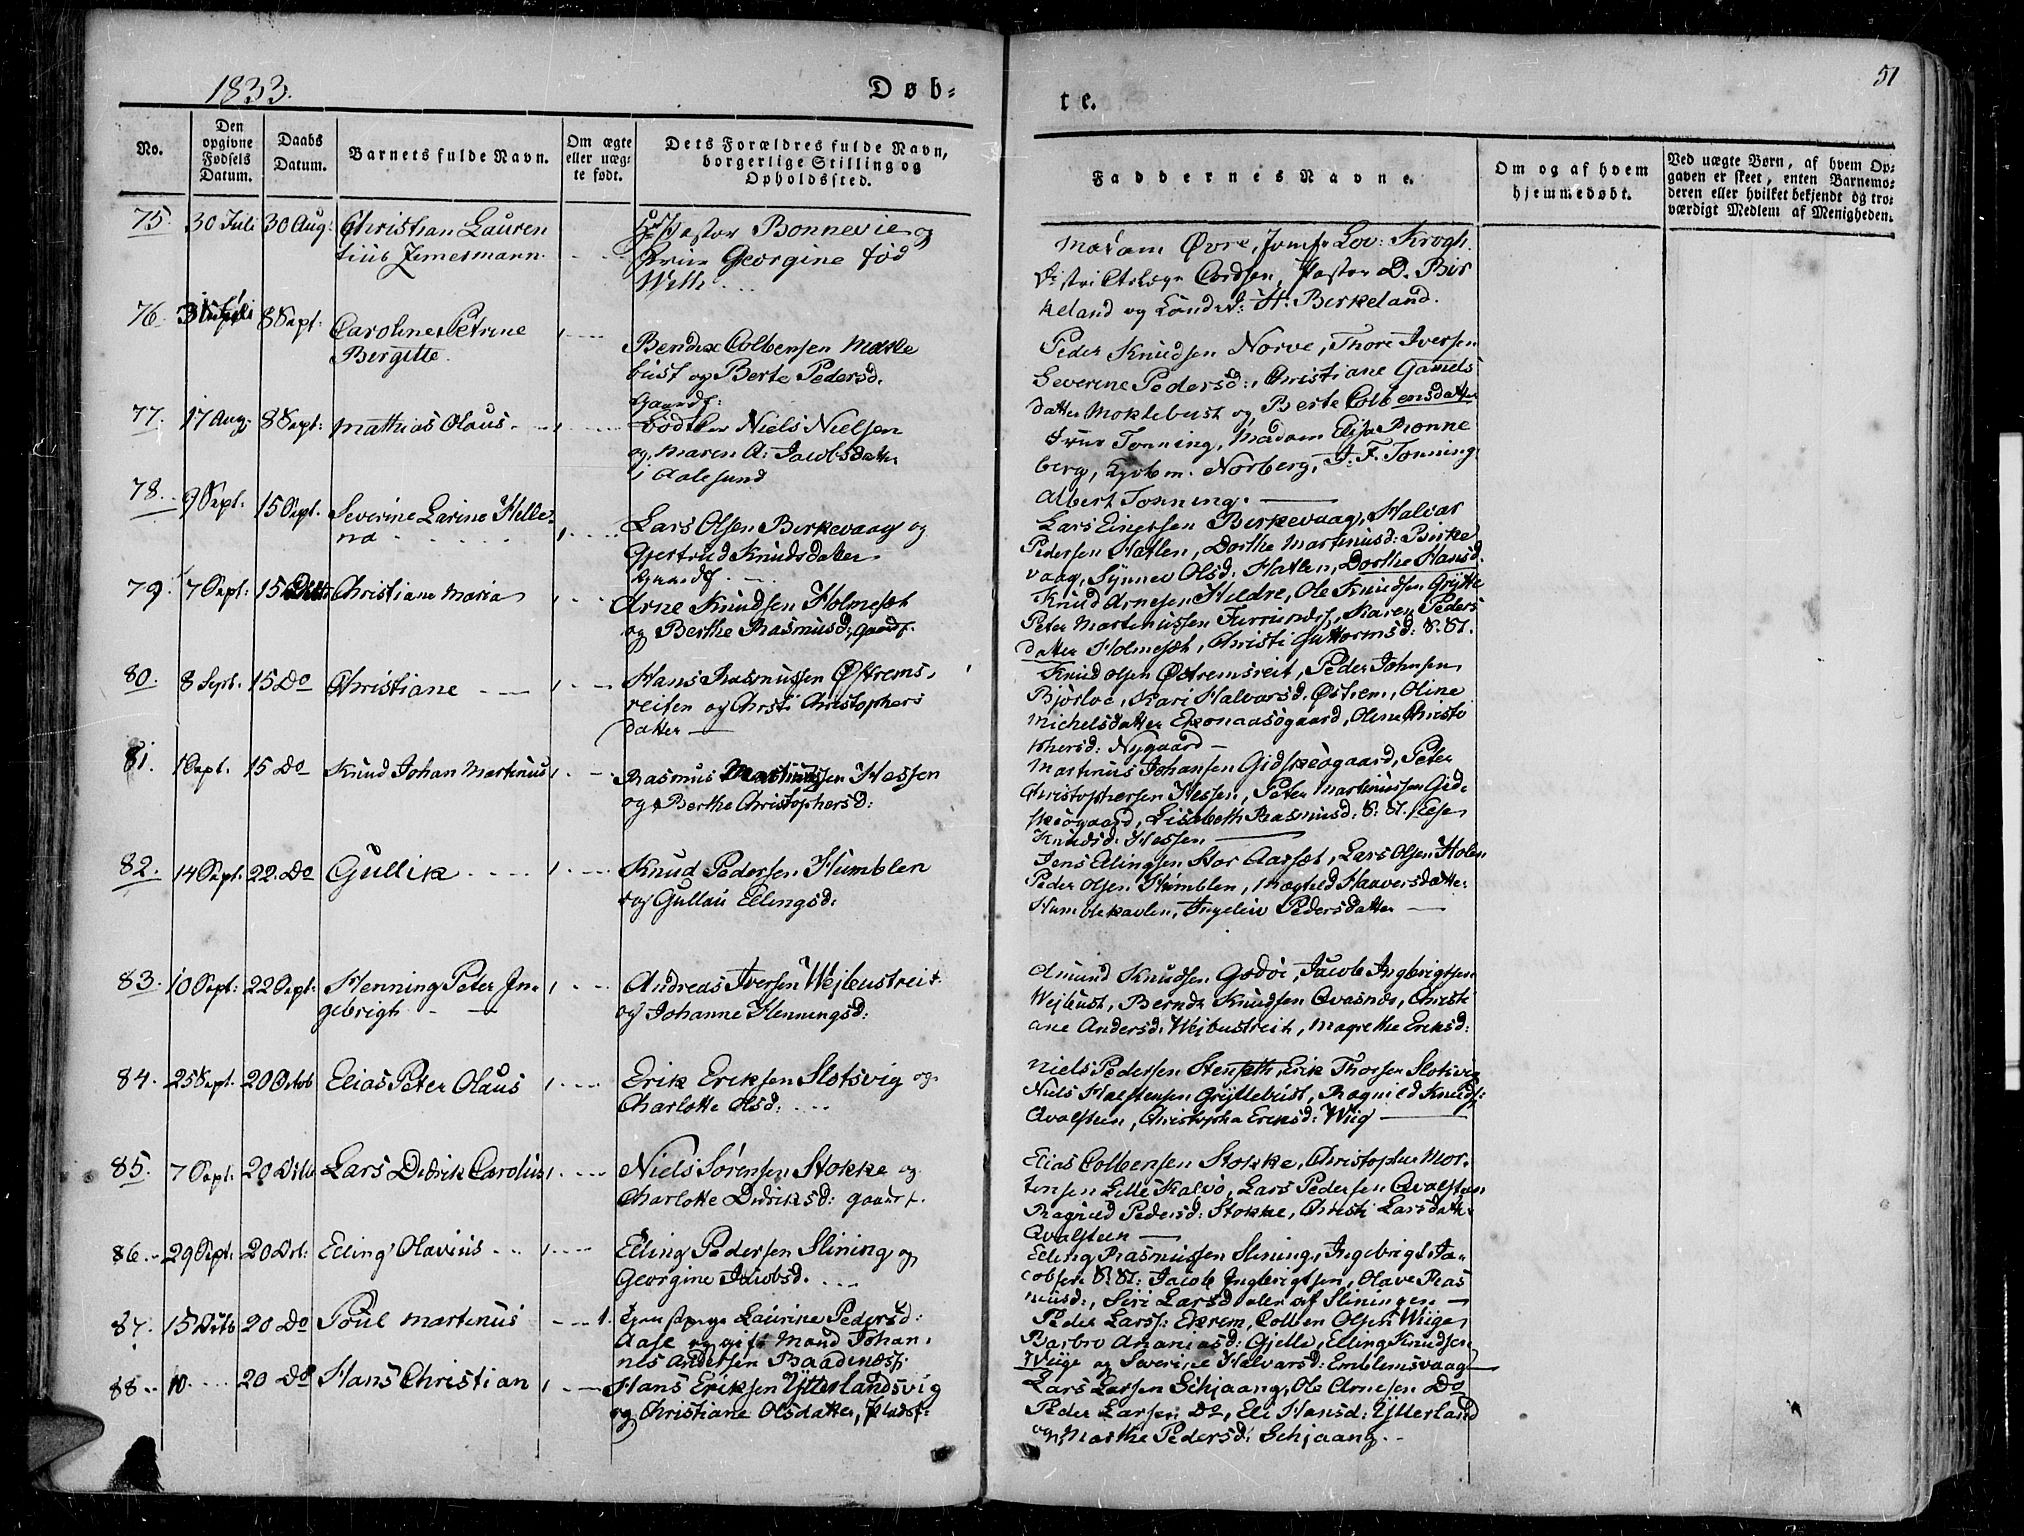 1833.
Døb-
te.
51
No.
Den opgivne Fødsels Datum.
Daabs Datum.
Barnets fulde Navn.
Om ægte eller uægte født.
Dets Forældres fulde Navn, borgerlige Stilling og Opholdssted.
Faddernes Navne.
Om og af hvem hjemmedøbt.
Ved uægte Børn, af hvem Opgaven er skeet, enten Barnemoderen eller hvilket bekjendt og troværdigt Medlem af Menigheden.
75. 30 Juli 30 Aug: Christian Lauren
tius Zimermann.
Pastor Bonnevie og
Georgine fød
Weth
Madam Øvre, Jomfr Lov: Krogh.
Pastor D. Bir
keland og H. Berkeland.
76. 8 Sept: Caroline Petrine
Bergitte.
Bendix Colbensen Mokle
bust og Berte Pedersd.
Gaardf:
Peder Knudsen Norve, Thore Iversen
Severine Pedersd:, Christiane Gamels
datter Moklebust og Berte Colbensdatter
77. 17 Aug. 8 Sept: Mathias Olaus
Bødtker Niels Nielsen
og Maren A: Jacobsdatter
i Aalesund
Frue Tonning, Madam Elisa Rønne
berg, Norberg, J. F. Tonning,
Albert Tonning.
78. 9 Sept. 15 Sept. Severine Larine Helle
na
Lars Olsen Birkevaag og
Gjertrud Knudsdatter
Gaardf.
Lars Einersen Birkevaag, Halvar
Pedersen Hatlen, Dorthe Martinusd: Birke
vaag, Synnev Olsd: Hatlen, Dorthe Hansd.
79. 7 Sept: 15 Ditto Christiane Maria
Arne Knudsen Holmesæt
og Berthe Rasmusd: Gaardf.
Knud Arnesen Hildre, Ole Knudsen Grytte
Peter Martinussen Karen Peders
datter Holmesæt, Christi Guttormsd: S. St.
80. 8 Sept. 15 Do Christiane
Hans Rasmussen Østrems
reiten og Christi Christophers
datter
Knud Olsen Østremsreit, Peder Johnsen
Kari Halvarsd. Østrem, Oline
Michelsdatter Oline Christo
phersd: Nygaard
81. 1 Sept. 15 Do Knud Johan Martinus
Rasmus Martinussen Hessen
og Berthe Christophersd:
Martinus Johansen Gidskeøgaard, Peter
Christophersen Hessen, Peter Martinussen Gid
skeøgaard, Lisabeth Rasmusd: S. St.
Knudsd: Hessen
82. 14 Sept. 22 Do Gullik
Knud Pedersen Humblen
og Gullau Ellingsd:
Jens Ellingsen Stor Aarsæt, Lars Olsen Holen
Peder Olsen Humblen, Magthild Haaversdatter
Ingeliv Pedersdatter
83. 10 Sept: 22 Sept: Henning Peter In
gebrigh
Andreas Iversen Wejbustreit
og Johanne Henningsd:
Amund Knudsen Godøe, Jacob Ingbrigtsen
Wejbust, Bernt Knudsen Qvasnes, Christi
ane Andersd: Wejbustreit, Magrethe Eriksd:
84. 25 Sept. 20 Octob Elias Peter Olaus
Erik Eriksen Slotsvig og
Charlotte Olsd:
Niels Pedersen Erik Thorsen Slotsvig
Niels Halstensen Gryttebust, Ragnild Knudsd:
Qvalsteen, Christopha Eriksd: Wiig
85. 7 Sept: 20 Ditto Lars Didrik Carolus
Niels Sørensen Stokke og
Charlotte Didriksd: gaardf.
Elias Colbensen Stokke, Christopher Mor
tensen Lille Kalvø, Lars Pedersen Qvalsteen
Ragnild Pedersd: Stokke, Christi Larsdatter
Qvalsteen
86. 29 Sept: 20 Oct: Elling Olavius
Elling Pedersen Slining og
Georgine Jacobsd.
Elling Rasmussen Slining, Ingebrigt Ja
cobsen S. St: Jacob Ingbrigtsen, Olave Ras
musd:, Siri Larsd alle af Sliningen
87. 15 20 Do Poul Martinus 1.
Laurine Pedersd:
Aase og gift Mand Johan
nes Andersen Baadnæs
Peder Larss: Ekrem, Colben Olsen Wiige
Barbro Ananiasd: Gjelle, Elling Knudsen
Wiige og Severine Halvarsd: Emblemsvaag
88. 10 20 Do Hans Christian
Hans Eriksen Ytterlandsvig
og Christiane Olsdatter, Pladsf:
Lars Larsen Schjaang, Ole Arnesen Do
Peder Larsen Do, Eli Hansd: Ytterland
og Marthe Pedersd: Schjaang.